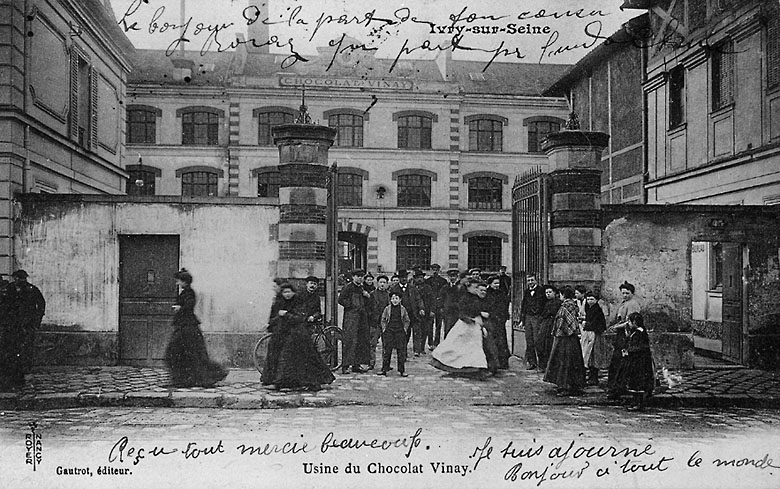 le bonjour de la part de ton cousin
Ivry-sur-Seine
CHOCOLAT VINAY
Reçu tout mercie beaucoup.
Je suis ajourné
Bonjour à tout le monde
ROYER
NANCY
Gautrot, éditeur.
Usine du Chocolat Vinay.